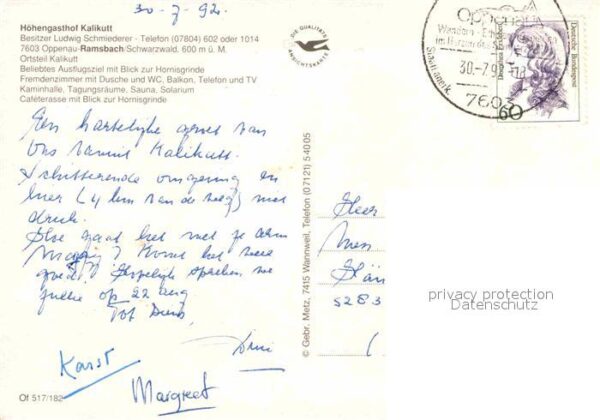 30-7-92.
Höhengasthof Kalikutt
Besitzer Ludwig Schmiederer - Telefon (07804) 602 oder 1014
7603 Oppenau-Ramsbach/Schwarzwald, 600 m ü. M.
Ortsteil Kalikutt
Beliebtes Ausflugsziel mit Blick zur Hornisgrinde
Fremdenzimmer mit Dusche und WC, Balkon, Telefon und TV
Kaminhalle, Tagungsräume, Sauna, Solarium
Caféterasse mit Blick zur Hornisgrinde
DIE QUALITÄTS ANSICHTSKARTE
Oppenau
Wandern
30.-7.92
760
Deutsche Bundespost
60
Een hartelijke groet van
Ons vanuit Kalikutt.
Schitterende omgeving en
hier (4 km van de weg) niet
druk.
Hoe gaat het met je
Komt het weer
goed? Hopelijk spreken we
jullie op 22 aug
Tot Ziens
Karst
Margreet
Of 517/182
© Gebr. Metz, 7415 Wannweil, Telefon (07121) 5 40 05
Heer
5283
privacy protection
Datenschutz